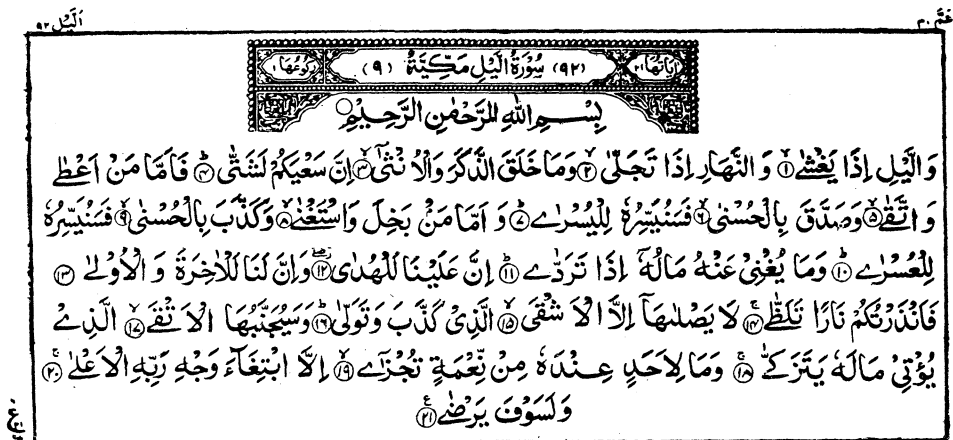 عَمَّ ٣٠ اَلَّيْل ٩٢
اٰيَاتُهَا ٢١ (٩٢) سُوْرَةُ الَّيْلِ مَكِّيَّةٌ (٩) رُكُوْعُهَا ١
بِسْمِ اللّٰهِ الرَّحْمٰنِ الرَّحِيْمِ
وَالَّيْلِ اِذَا يَغْشٰى ۙ﴿١﴾ وَالنَّهَارِ اِذَا تَجَلّٰى ۙ﴿٢﴾ وَمَا خَلَقَ الذَّكَرَ وَالْاُنْثٰٓى ۙ﴿٣﴾ اِنَّ سَعْيَكُمْ لَشَتّٰى ؕ﴿٤﴾ فَاَمَّا مَنْ اَعْطٰى
وَاتَّقٰى ۙ﴿٥﴾ وَصَدَّقَ بِالْحُسْنٰى ۙ﴿٦﴾ فَسَنُيَسِّرُهٗ لِلْيُسْرٰى ؕ﴿٧﴾ وَاَمَّا مَنْۢ بَخِلَ وَاسْتَغْنٰى ۙ﴿٨﴾ وَكَذَّبَ بِالْحُسْنٰى ۙ﴿٩﴾ فَسَنُيَسِّرُهٗ
لِلْعُسْرٰى ؕ﴿١٠﴾ وَمَا يُغْنِيْ عَنْهُ مَالُهٗٓ اِذَا تَرَدّٰى ؕ﴿١١﴾ اِنَّ عَلَيْنَا لَلْهُدٰى ۖ﴿١٢﴾ وَاِنَّ لَنَا لَلْاٰخِرَةَ وَالْاُوْلٰى ﴿١٣﴾
فَاَنْذَرْتُكُمْ نَارًا تَلَظّٰى ۚ﴿١٤﴾ لَا يَصْلٰىهَآ اِلَّا الْاَشْقَى ۙ﴿١٥﴾ الَّذِيْ كَذَّبَ وَتَوَلّٰى ؕ﴿١٦﴾ وَسَيُجَنَّبُهَا الْاَتْقَى ۙ﴿١٧﴾ الَّذِيْ
يُؤْتِيْ مَالَهٗ يَتَزَكّٰى ۚ﴿١٨﴾ وَمَا لِاَحَدٍ عِنْدَهٗ مِنْ نِّعْمَةٍ تُجْزٰٓى ۙ﴿١٩﴾ اِلَّا ابْتِغَآءَ وَجْهِ رَبِّهِ الْاَعْلٰى ۚ﴿٢٠﴾
وَلَسَوْفَ يَرْضٰى ﴿٢١﴾